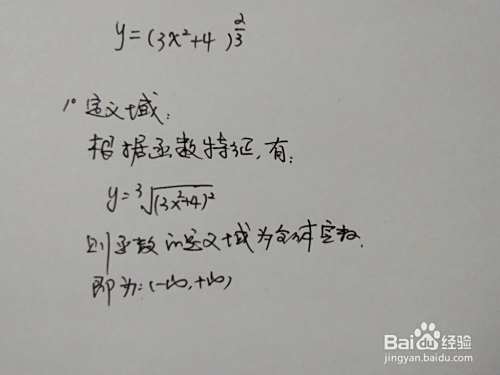 y=(3x²+4)^{2/3}
1° 定义域:
根据函数特征,有:
y=³√(3x²+4)²
则函数的定义域为全体实数.
即为:(-∞,+∞)
Baidu 经验
jingyan.baidu.com